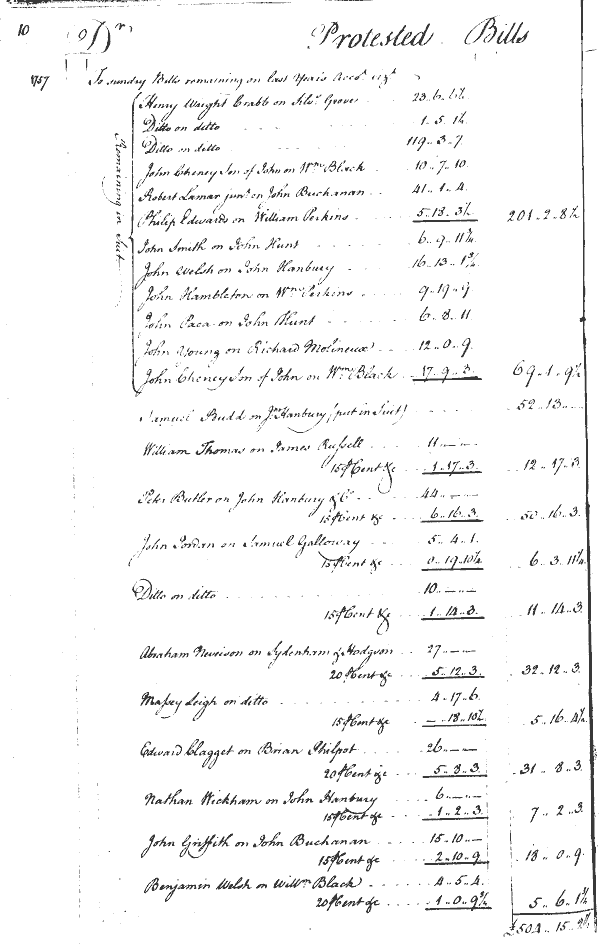 10 Dr Protested Bills
1757 To sundry Bills remaining on last Years Acct. vizt.
Remaining in Suit
Henry Wright Crabb on Silvr. Grove 23..6..6½
Ditto on ditto 1..5..1½
Ditto on ditto 119..3..7.
John Cheney Son of John on Wm. Black 10..7..10.
Robert Lamar junr. on John Buchanan 41..1..4.
Philip Edwards on William Perkins 5..18..3½ 201..2..8½
John Smith on John Hunt 6..9..11¼
John Welsh on John Hanbury 16..13..1¾
John Hambleton on Wm. Perkins 9..19..9
John Paca on John Hunt 6..8..11
John Young on Richard Molineux 12..0..9.
John Cheney Son of John on Wm. Black 17..9..3. 69..1..9½
Samuel Budd on Jno. Hanbury (put in Suit) 52..13..—
William Thomas on James Russell 11..—..—
15 ⅌ Cent &c 1..17..3. 12..17..3
Peter Butler on John Hanbury & Co. 44..—..—
15 ⅌ Cent &c 6..16..3. 50..16..3.
John Jordan on Samuel Galloway 5..4..1.
15 ⅌ Cent &c 0..19..10¼ 6..3..11¼
Ditto on ditto 10..—..—
15 ⅌ Cent &c 1..14..3. 11..14..3
Abraham on Sydenham & Hodgson 27..—..—
20 ⅌ Cent &c 5..12..3. 32..12..3.
Massey Leigh on ditto 4..17..6.
15 ⅌ Cent &c —..18..10½ 5..16..4½
Edward Clagget on Brian Philpot 26..—..—
20 ⅌ Cent &c 5..8..3. 31..8..3.
Nathan Wickham on John Hanbury 6..—..—
15 ⅌ Cent &c 1..2..3. 7..2..3
John Griffith on John Buchanan 15..10..—
15 ⅌ Cent &c 2..10..9. 18..0..9.
Benjamin Welsh on Willm. Black 4..5..4.
20 ⅌ Cent &c 1..0..9¾ 5..6..1¾
£504..15..2¾